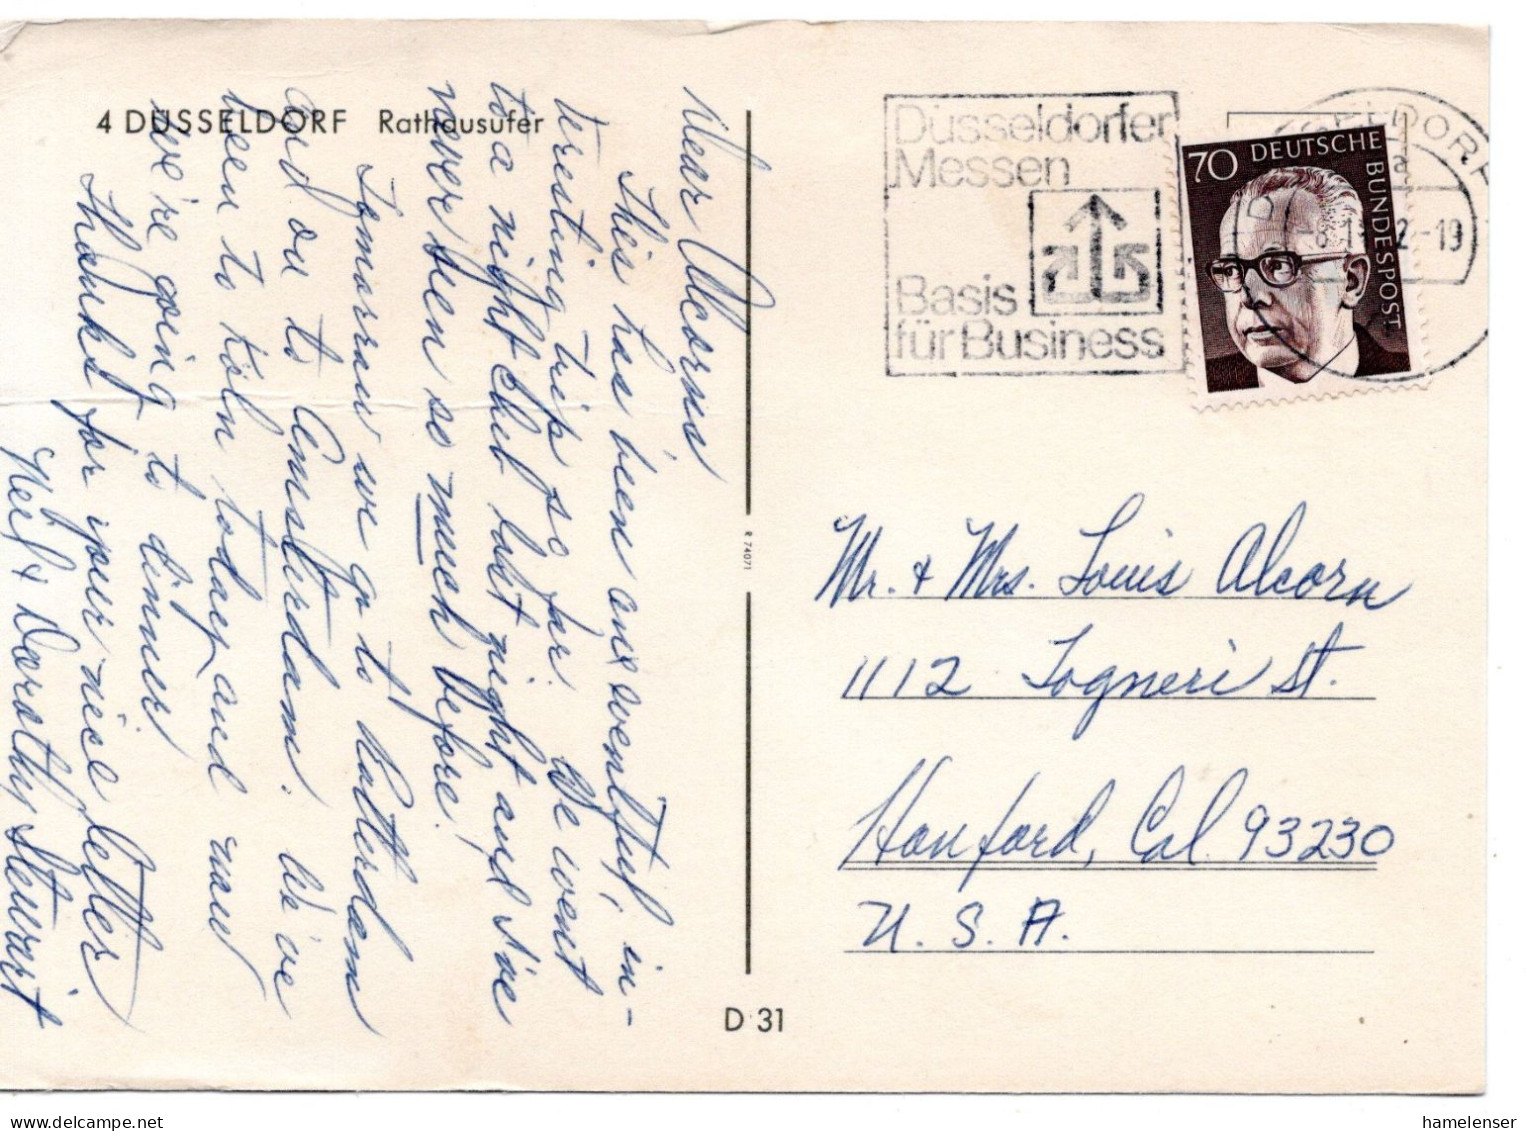 4 DÜSSELDORF Rathausufer
Dear Alcorns,
This has been an eventful, in-
teresting trip so far. We went
to a night club last night and I've
never seen so much before!
Tomorrow we go to Rotterdam
and on to Amsterdam. We've
been to Köln today and now
we're going to dinner
Thanks for your nice letter
Herb & Dorothy Stewart
R 74071
D 31
Düsseldorfer
Messen
Basis
für Business
70 DEUTSCHE BUNDESPOST
-19
Mr. + Mrs. Louis Alcorn
1112 Togneri St.
Hanford, Cal. 93230
U. S. A.
hamelenser